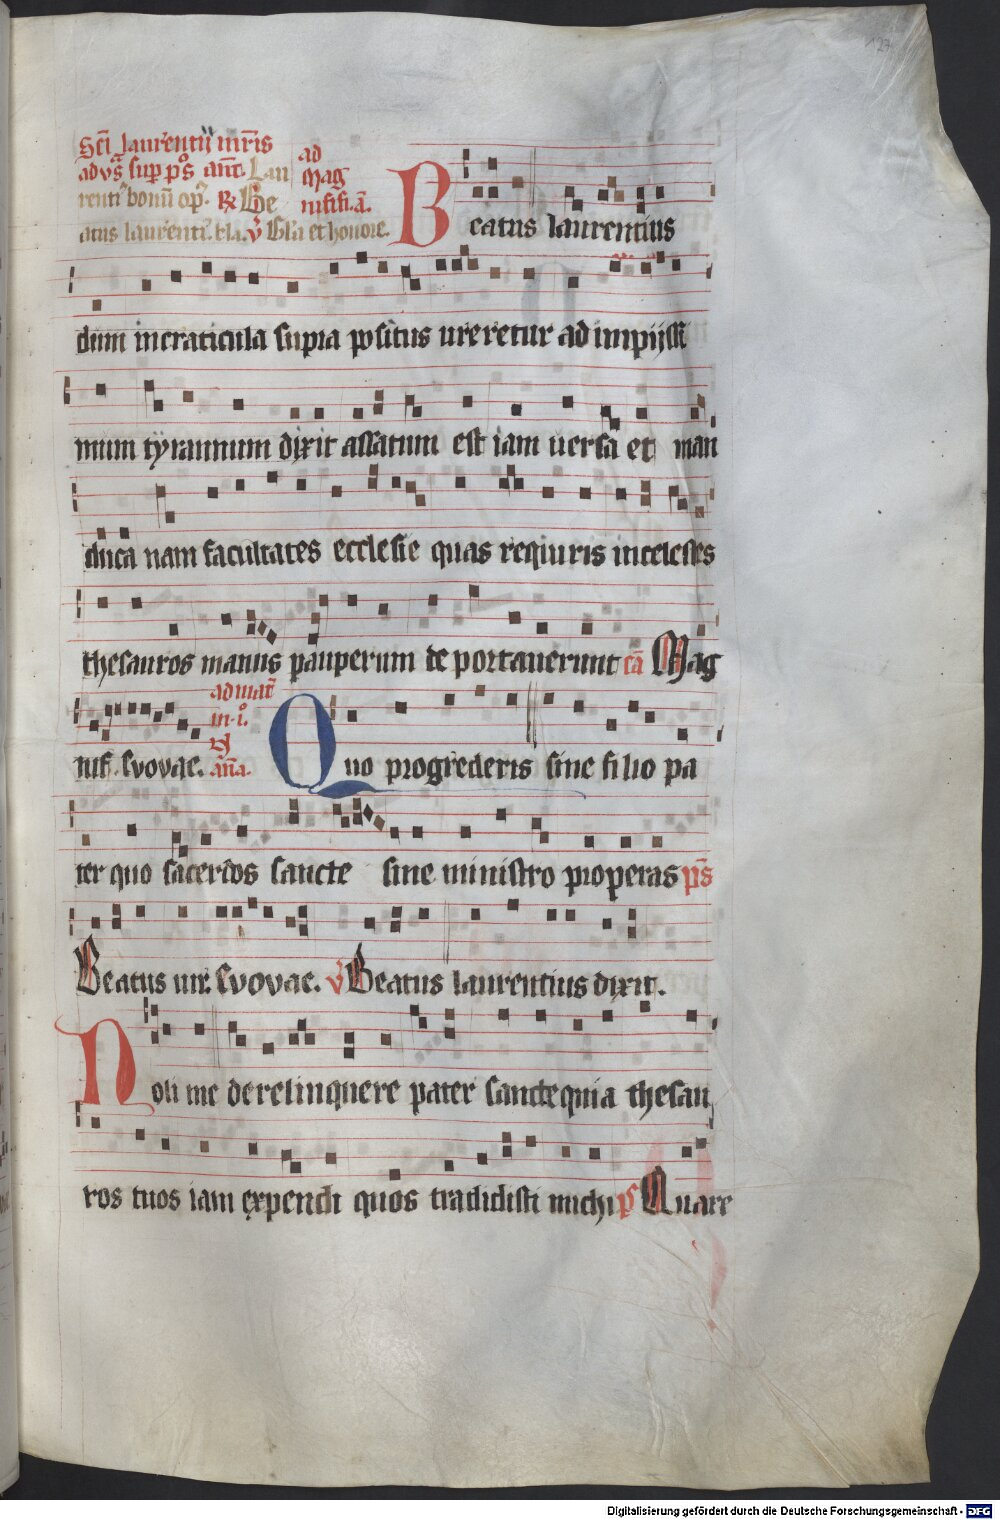 123
Sc̄i laurentij mr̄is
ad vs̄ sup ps̄ ant. Lau
renti bonū op. ℟ Be
atus laurenti. bla. ℣ Gl'a et honore.
ad
Mag
nifi. a.
Beatus laurentius
dum incraticula supra positus ureretur ad impijssi
mum tyrannum dixit assatum est iam uersa et man
duca nam facultates ecclesie quas requiris in celestes
thesauros manus pauperum de portauerunt cā Mag
nif. Evovae.
ad mat̄
in .i.
añа.
Quo progrederis sine filio pa
ter quo sacerdos sancte sine ministro properas ps̄
Beatus uir. Evovae. ℣ Beatus laurentius dixit.
Noli me derelinquere pater sancte quia thesau
ros tuos iam expendi quos tradidisti michi ps Quare
Digitalisierung gefördert durch die Deutsche Forschungsgemeinschaft - DFG